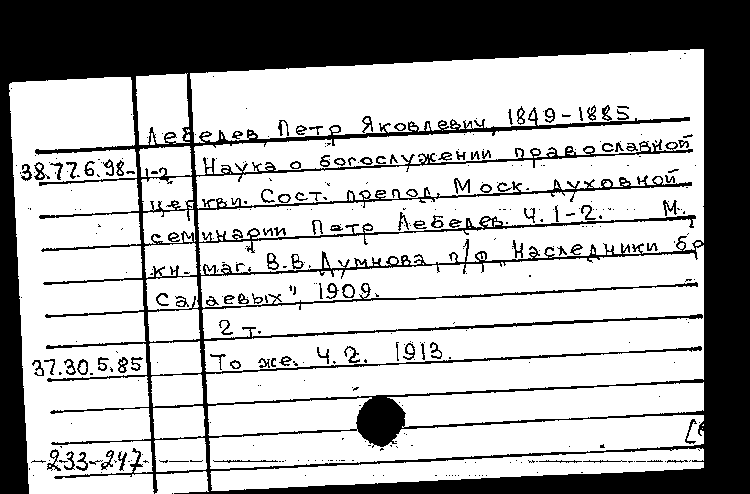 Лебедев, Петр Яковлевич, 1849-1885.
38.77.6.98- 1-2 Наука о богослужении православной
церкви. Сост. препод. Моск. духовной
семинарии Петр Лебедев. Ч. 1-2. М.
кн. маг. В.В. Думнова, п/ф „Наследники бр
Салаевых", 1909.
2 т.
37.30.5.85 То же. Ч. 2. 1913.
233-247